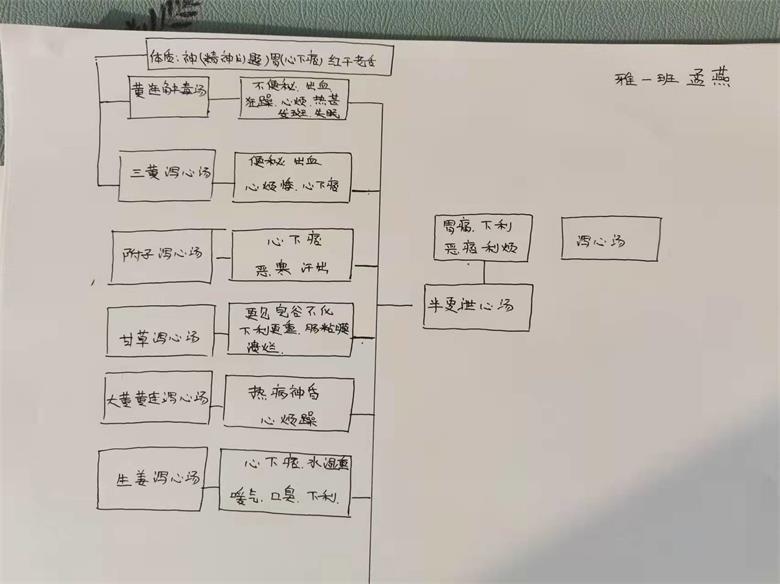 体质:神(精神问题)胃(心下痞) 红干老舌
雅一班 孟燕
黄连解毒汤
不便秘. 出血
狂躁. 心烦. 热甚
发斑. 失眠
三黄泻心汤
便秘. 出血
心烦悸. 心下痞
附子泻心汤
心下痞
恶寒 汗出
胃痛. 下利
恶. 痞 利烦
泻心汤
半更泄心汤
甘草泻心汤
更见完谷不化
下利更重. 肠粘膜
溃烂.
大黄黄连泻心汤
热病神昏
心烦躁
生姜泻心汤
心下痞. 水湿重
嗳气. 口臭. 下利.